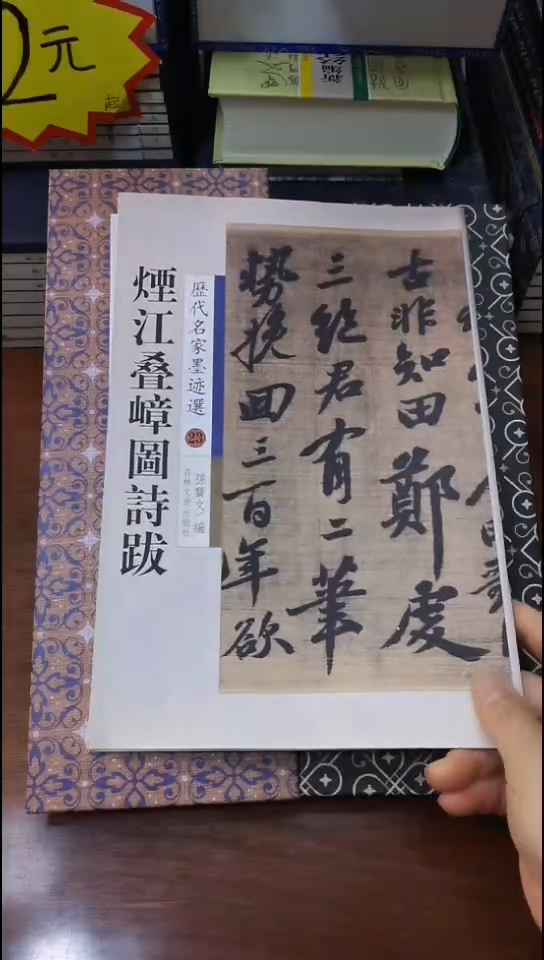 2元
起
新編
煙江叠嶂圖詩跋
歷代名家墨迹選
23
孫寶文 編
吉林文史出版社
古非知田鄭虔
三絶君有二筆
势挽回三百年欲